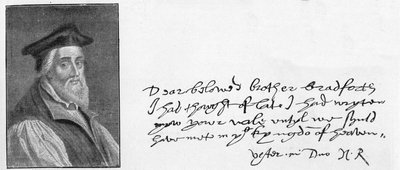 Dear beloved brother Bradforth
I had thowght of late I had wryten
yowr vale untyl we should
have met in yᵉ kyngdō of heaven
Vester in Dno N. R